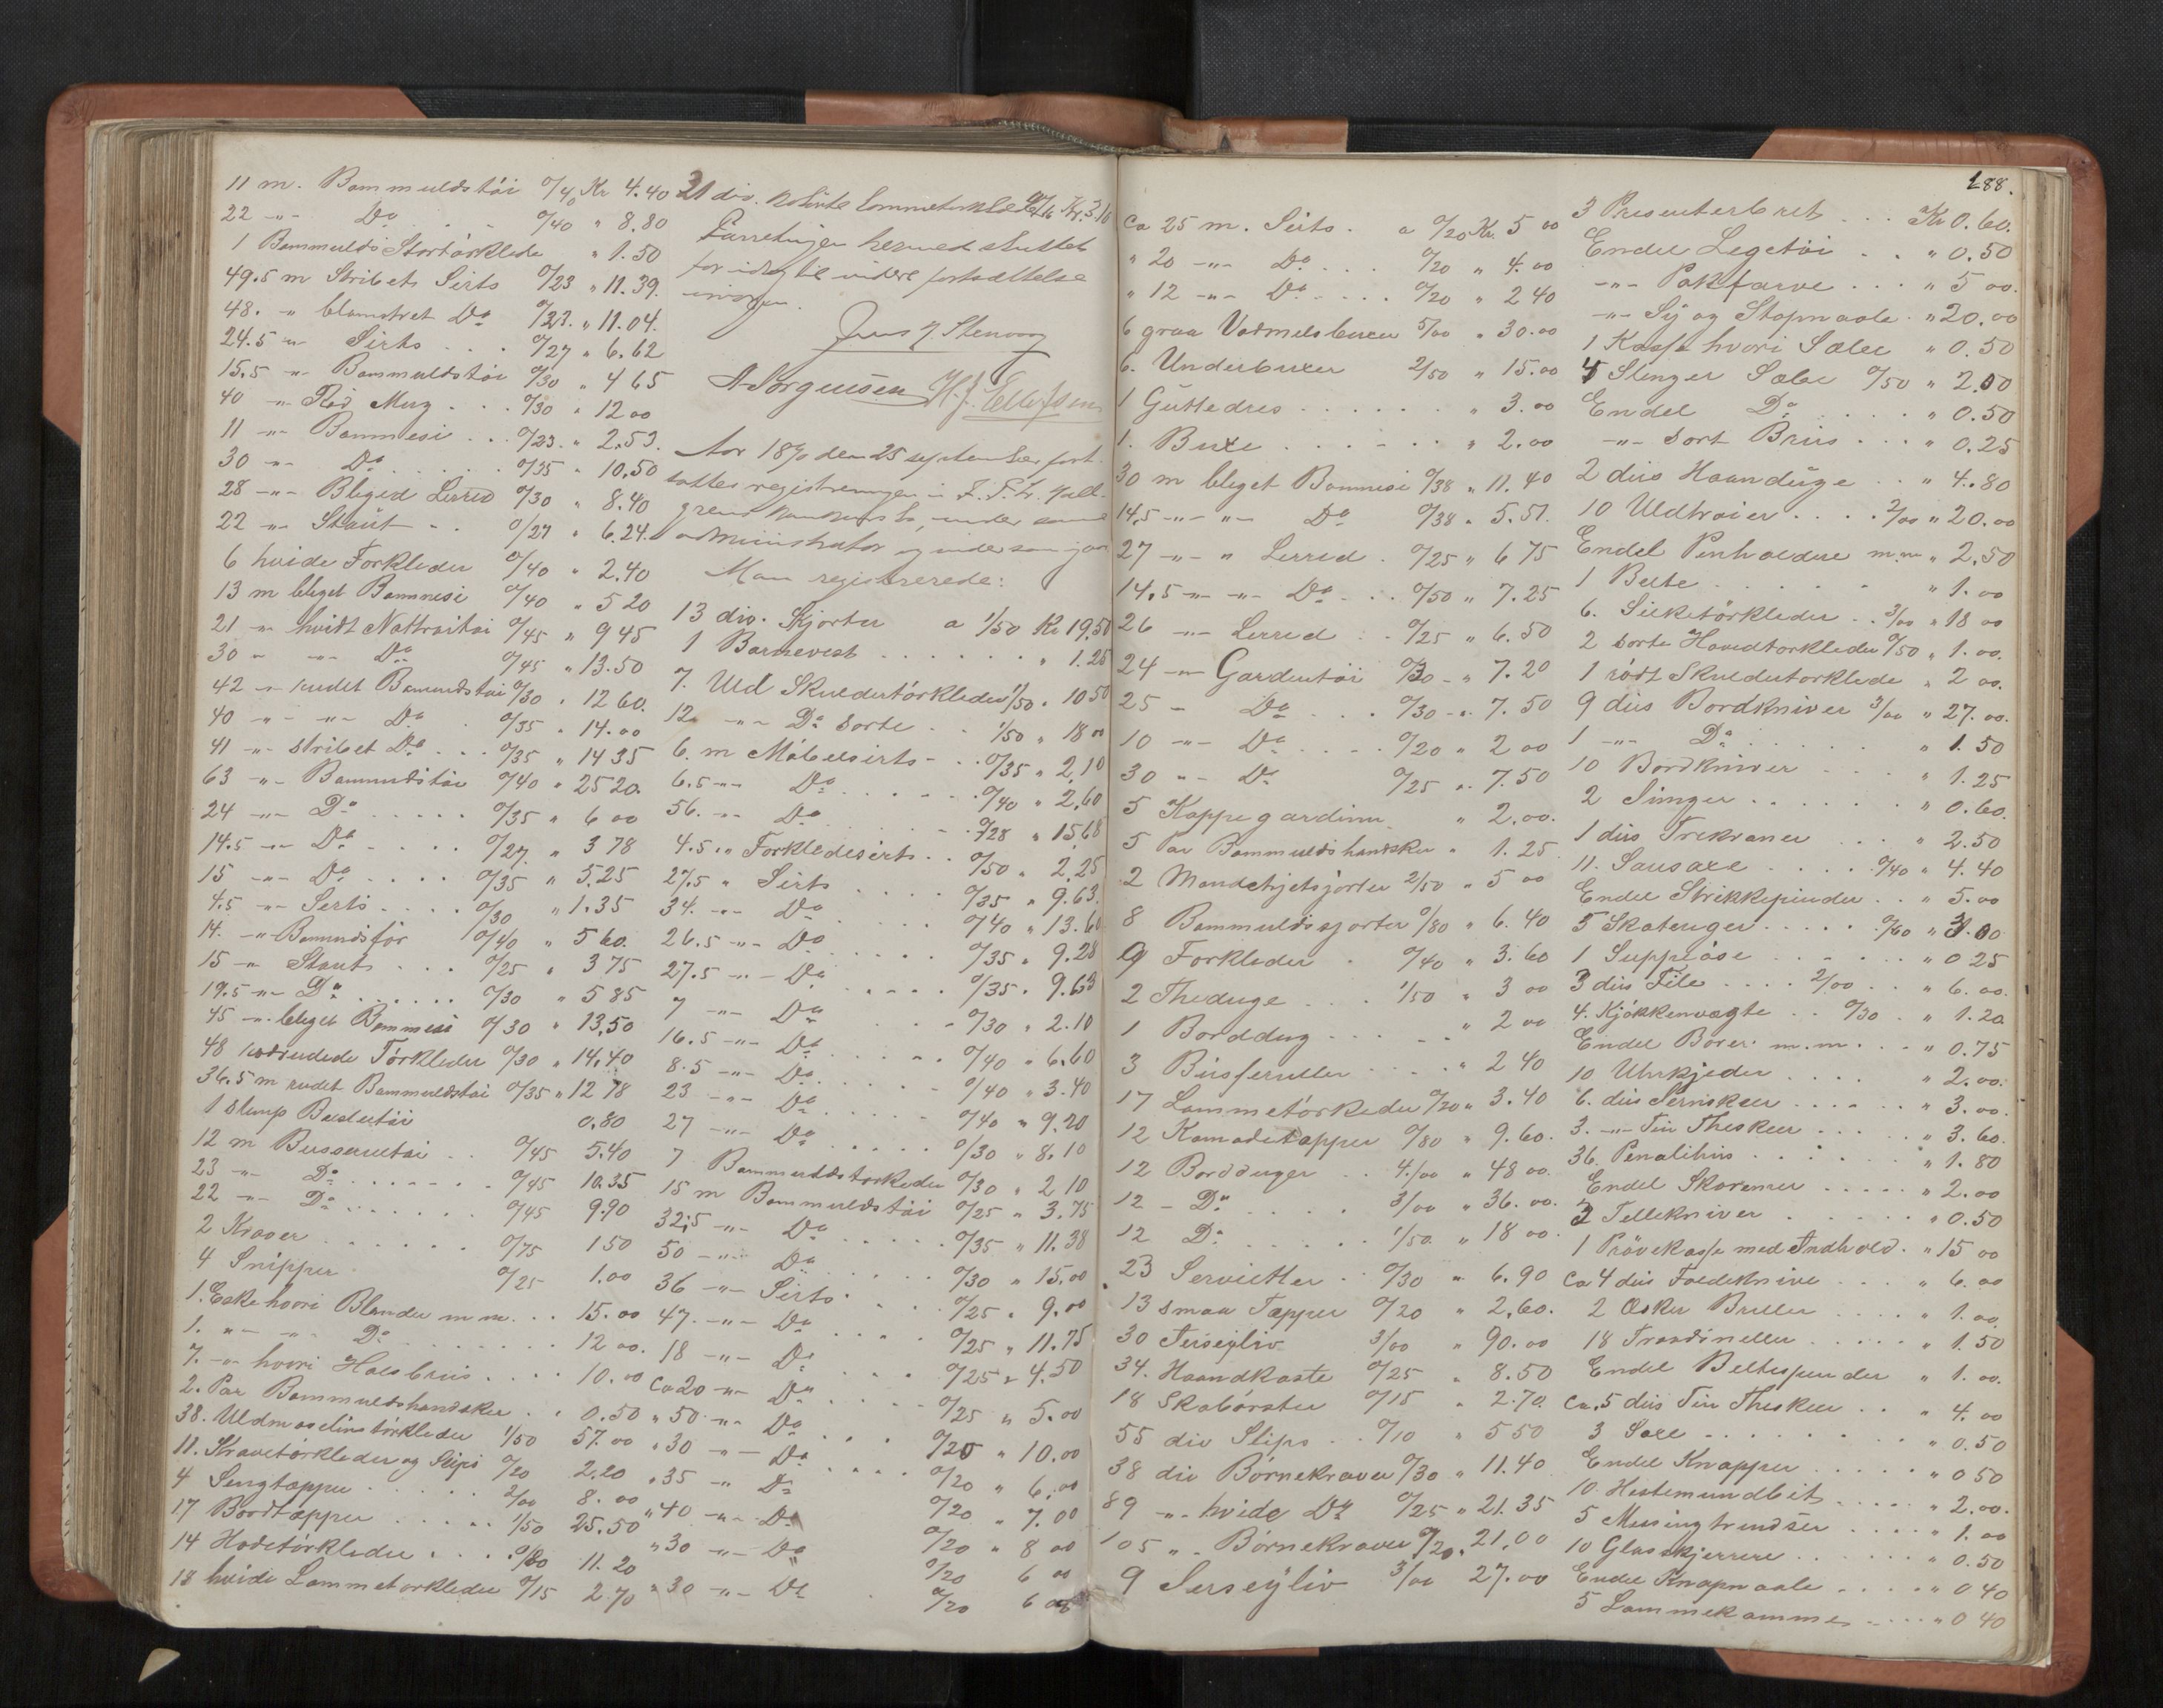 11 m. Bommuldstöi 0/40 Kr 4.40
22 -"- Do 0/40 " 8.80
1 Bommulds Stortörklede " 1.50
49.5 m Stribet Sirts 0/23 " 11.39.
48. -"- blomstret Do 0/23. " 11.04.
24.5 -"- Sirts . . . 0/27 " 6.62
15.5 -"- Bommuldstöi 0/30 " 4 65
40 -"- Röd Merg . . . 0/30 " 12 00
11 -"- Bommesi . . . 0/23. " 2.53.
30 -"- Do . . . . . 0/35 " 10.50
28 -"- Bleged Lerred 0/30 " 8.40
22 -"- Staut . . 0/27 " 6.24.
6 hvide Forkleder 0/40 " 2.40
13 m bleget Bommesi 0/40 " 5 20
21 -"- hvidt Nattröitöi 0/45 " 9 45
30 -"- -"- Do 0/45 " 13.50
42 -"- rudet Bomuldstöi 0/30 " 12 60.
40 -"- -"- Do . 0/35 " 14.00
41 -"- stribet Do . . . 0/35 " 14 35
63 -"- Bommuldstöi 0/40 " 25 20.
24 -"- Do . . . . . 0/35 " 6 00
14.5 -"- Do . . . . . 0/27. " 3 78
15 -"- Do . . . . 0/35 " 5.25
4.5 -"- Serts . . . . 0/30 " 1.35
14. -"- Bomuldsför 0/40 " 5 60.
15 -"- Staut . . . 0/25 " 3 75
19.5 -"- Do . . . . . . 0/30 " 5 85
45 -"- bleget Bommesi 0/30 " 13.50
48 rödrudede Törkleder 0/30 " 14.40
36.5 m rudet Bommuldstöi 0/35 " 12 78
1 Stump Buldertöi 0.80
12 m Busserultöi . . 0/45 5.40
23 -"- Do . . . . . . 0/45 10.35
22 -"- Do . . . . . . 0/45 9.90
2 Kraver . . . . . . 0/75 1 50
4 Snipper 0/25 1.00
1. Eske hvori Blonder m m . . . 15.00
1. -"- -"- Do . . . . . . . . 12 00.
7. -"- hvori Halsbrus . . . . 10.00
2. Par Bommuldshandsker . . 0.50
38. Uldmoselinstörkleder 1/50 57.00
11. Kravetörkleder og Slips 0/20 2.20
4 Sengtepper . . . . . 2/00 8.00
17 Bordtepper . . . . . 1/50 25.50
14 Hodetörkleder . . . 0/80 11.20
18 hvide Lommetorkleder 0/15 2.70
21 div. kolörte Lommetorklæder 0/15 Kr. 3.15
Forretningen hermed sluttet
for idag til videre fortsættelse
imorgen.
Jens J. Stenvog
A Jörgensen H. J. Ellefsen
Aar 1890 den 25 september fort-
sattes registreringen i F. F. L. Hall-
grens konkursbo, under samme
administrator og vidner som igaar
Man registrerede:
13 div. Skjorter a 1/50 Kr 19,50
1 Barnevest . . . . . . " 1.25
7. Uld Skuldertörkleder 1/50 " 10 50
12 -"- Do sorte . . 1/50 " 18 00
6. m Möbelsirts - . . 0/35 " 2,10
6.5 -"- Do . . . . . . 0/40 " 2,60
56. -"- Do . . . . . . 0/28 " 15,68
4.5 -"- Forkledesirts . . 0/50 " 2,25
27.5 " Sirts . . . . . 0/35 " 9.63.
34. -"- Do . . . . . 0/40 " 13.60
26.5 -"- Do . . . . . 0/35 " 9.28
27.5 -"- Do . . . . . 0/35 " 9.63
7 -"- Do . . . - 0/30 " 2.10
16.5 -"- Do . . . . . 0/40 " 6.60
8.5 -"- Do . . . . . 0/40 " 3.40
23 -"- Do . . . . . 0/40 " 9.20
27 -"- Do . . . . . 0/30 " 8.10
7 Bommuldstorkleder 0/30 " 2 10
15 m Bommuldstöi 0/25 " 3.75
32,5 -"- Do . . . . . 0/35 " 11.38
50 -"- Do . . . . . 0/30 " 15.00
36 -"- Sirts . . . . 0/25 " 9.00
47. -"- Do . . . . 0/25 " 11.75
18 -"- Do . . . . 0/25 " 4.50
ca 20 -"- Do . . . . 0/25 " 5.00
" 50 -"- Do . . . . 0/20 " 10.00
" 30 -"- Do . . . . 0/20 " 6.00
" 35 -"- Do 0/20 " 7.00
" 40 -"- Do 0/20 " 8 00
" 30 -"- Do 0/20 6 00
" 30 -"- Do . 0/20 6 00
188.
Ca 25 m. Sirts . a 0/20 Kr. 5 00
" 20 -"- Do . . . 0/20 " 4.00
" 12 -"- Do . . . . 0/20 " 2 40
6 graa Vadmelsbuxer 5/00 " 30.00
6. Underbuxer 2/50 " 15.00
1 Guttedres . . . . . . " 3.00
1. Buxe . . . . . . " 2.00
30 m bleget Bommesi 0/38 " 11.40
14.5 -"- -"- Do 0/38 " 5.51.
27 -"- " Lerred . 0/25 " 6 75
14.5 -"- -"- Do . . . 0/50 " 7.25
26 -"- Lerred . . 0/25 " 6.50
24 -"- Gardintöi 0/30 - " 7.20
25 - Do . . . 0/30 - " 7.50
10 -"- Do . . . . 0/20 " 2 00
30 -"- Do 0/25 " 7.50
5 Kappegardiner " 2,00.
5 Par Bommuldshandsker " 1.25
2 Mandchjetsjorter 2/50 " 5 00
8 Bommuldssjorter 0/80 " 6.40
9 Forkleder . 0/40 " 3.60
2 Theduge . . . 1/50 " 3 00
1 Borddug . . . . . " 2 00
3 Busseruller . . . . " 2 40
17 Lommetörkleder 0/20 " 3.40
12 Komodetæpper 0/80 " 9.60.
12 Bordduger . . 4/00 " 48 00.
12 - Do . . . . . 3/00 " 36.00.
12 Do . . . . . 1/50. " 18 00.
23 Servietter . . 0/30 " 6.90
13 smaa Tæpper 0/20 " 2,60.
30 Terseyliv 3/00 " 90.00
34. Haandkaste 0/25 " 8.50
18 Skobörster 0/15 " 2.70.
55 div Slips . . 0/10 " 5 50
38 div Börnekraver 0/30 " 11.40
89 -"- hvide Do 0/25 " 21.35
105 " - Börnekraver 0/20 " 21.00
9 Terseyliv 3/00 27.00
3 Presenterbret . . . Kr 0.60.
Endel Legetöi . . " 0.50
-"- Pakfarve . . . " 5 00.
-"- Sy og Stopnaale . " 20.00
1 Kasse hvori Sæler " 0.50
4 Stenger Sæbe 0/50 " 2.00
Endel Do . . . . . " 0.50
-"- sort Brus . . . " 0.25
2 dus Haanduge . . " 4.80
10 Uldtröier . . . . 2/00 " 20.00
Endel Penholdere m.m. " 2,50
1 Belte . . . . . . " 1.00
6. Silketörkleder . . 3/00 " 18 00
2 sorte Hovedtorkleder 0/50 " 1.00.
1 rödt Skuldertorklede " 2 00.
9 dus Bordkniver 3/00 " 27.00.
1 -"- Do . . . . . . " 1.50
10 Bordkniver . . . " 1.25
2 Simger . . . . . . " 0.60.
1 dus Trekraner . . . " 2.50
11. Sausaxe . . . . 0/40 " 4.40
Endel Strikkepinder . . " 5.00
5 Skatenger . . . . . 0/60 " 3.00
1 Suppeöse . . . . . . " 0 25
3 dus File . . . . 2/00 . . " 6.00.
4. Kjökkenvægte . . 0/30 . " 1.20
Endel Borer m.m. . . . " 0.75
10 Uhrkjeder . . . . " 2.00.
6. dus Jernskeer . . . . . " 3.00.
3. -"- Tin Theskeer . . . . " 3.60.
36. Penalihus . . . . . " 1.80
Endel Skoremer . . . . . " 2.00
2 Tellekniver . . . . . " 0.50
1 Prövekasse med Indhold . " 15 00
Ca 4 dus Foldeknive . . . . " 6.00
2 Æsker Briller . . . . . " 1.00
18 Traadsneller . . . . . " 1.50
Endel Beltespender " 1.00.
Ca. 5 dus Tin Theskeer . . " 4.00
3 Saxe . . . . . . . . " 0.50
Endel Knapper . . . . . " 0 50
10 Hestemundbit . . . . . " 2.00.
5 Messingtrendser . . . . " 1.00
10 Glasskjerrere . . . . . . " 0.50
Endel Knapnaale . . . . . " 0 40
5 Lommekamme . . . . " 0 40